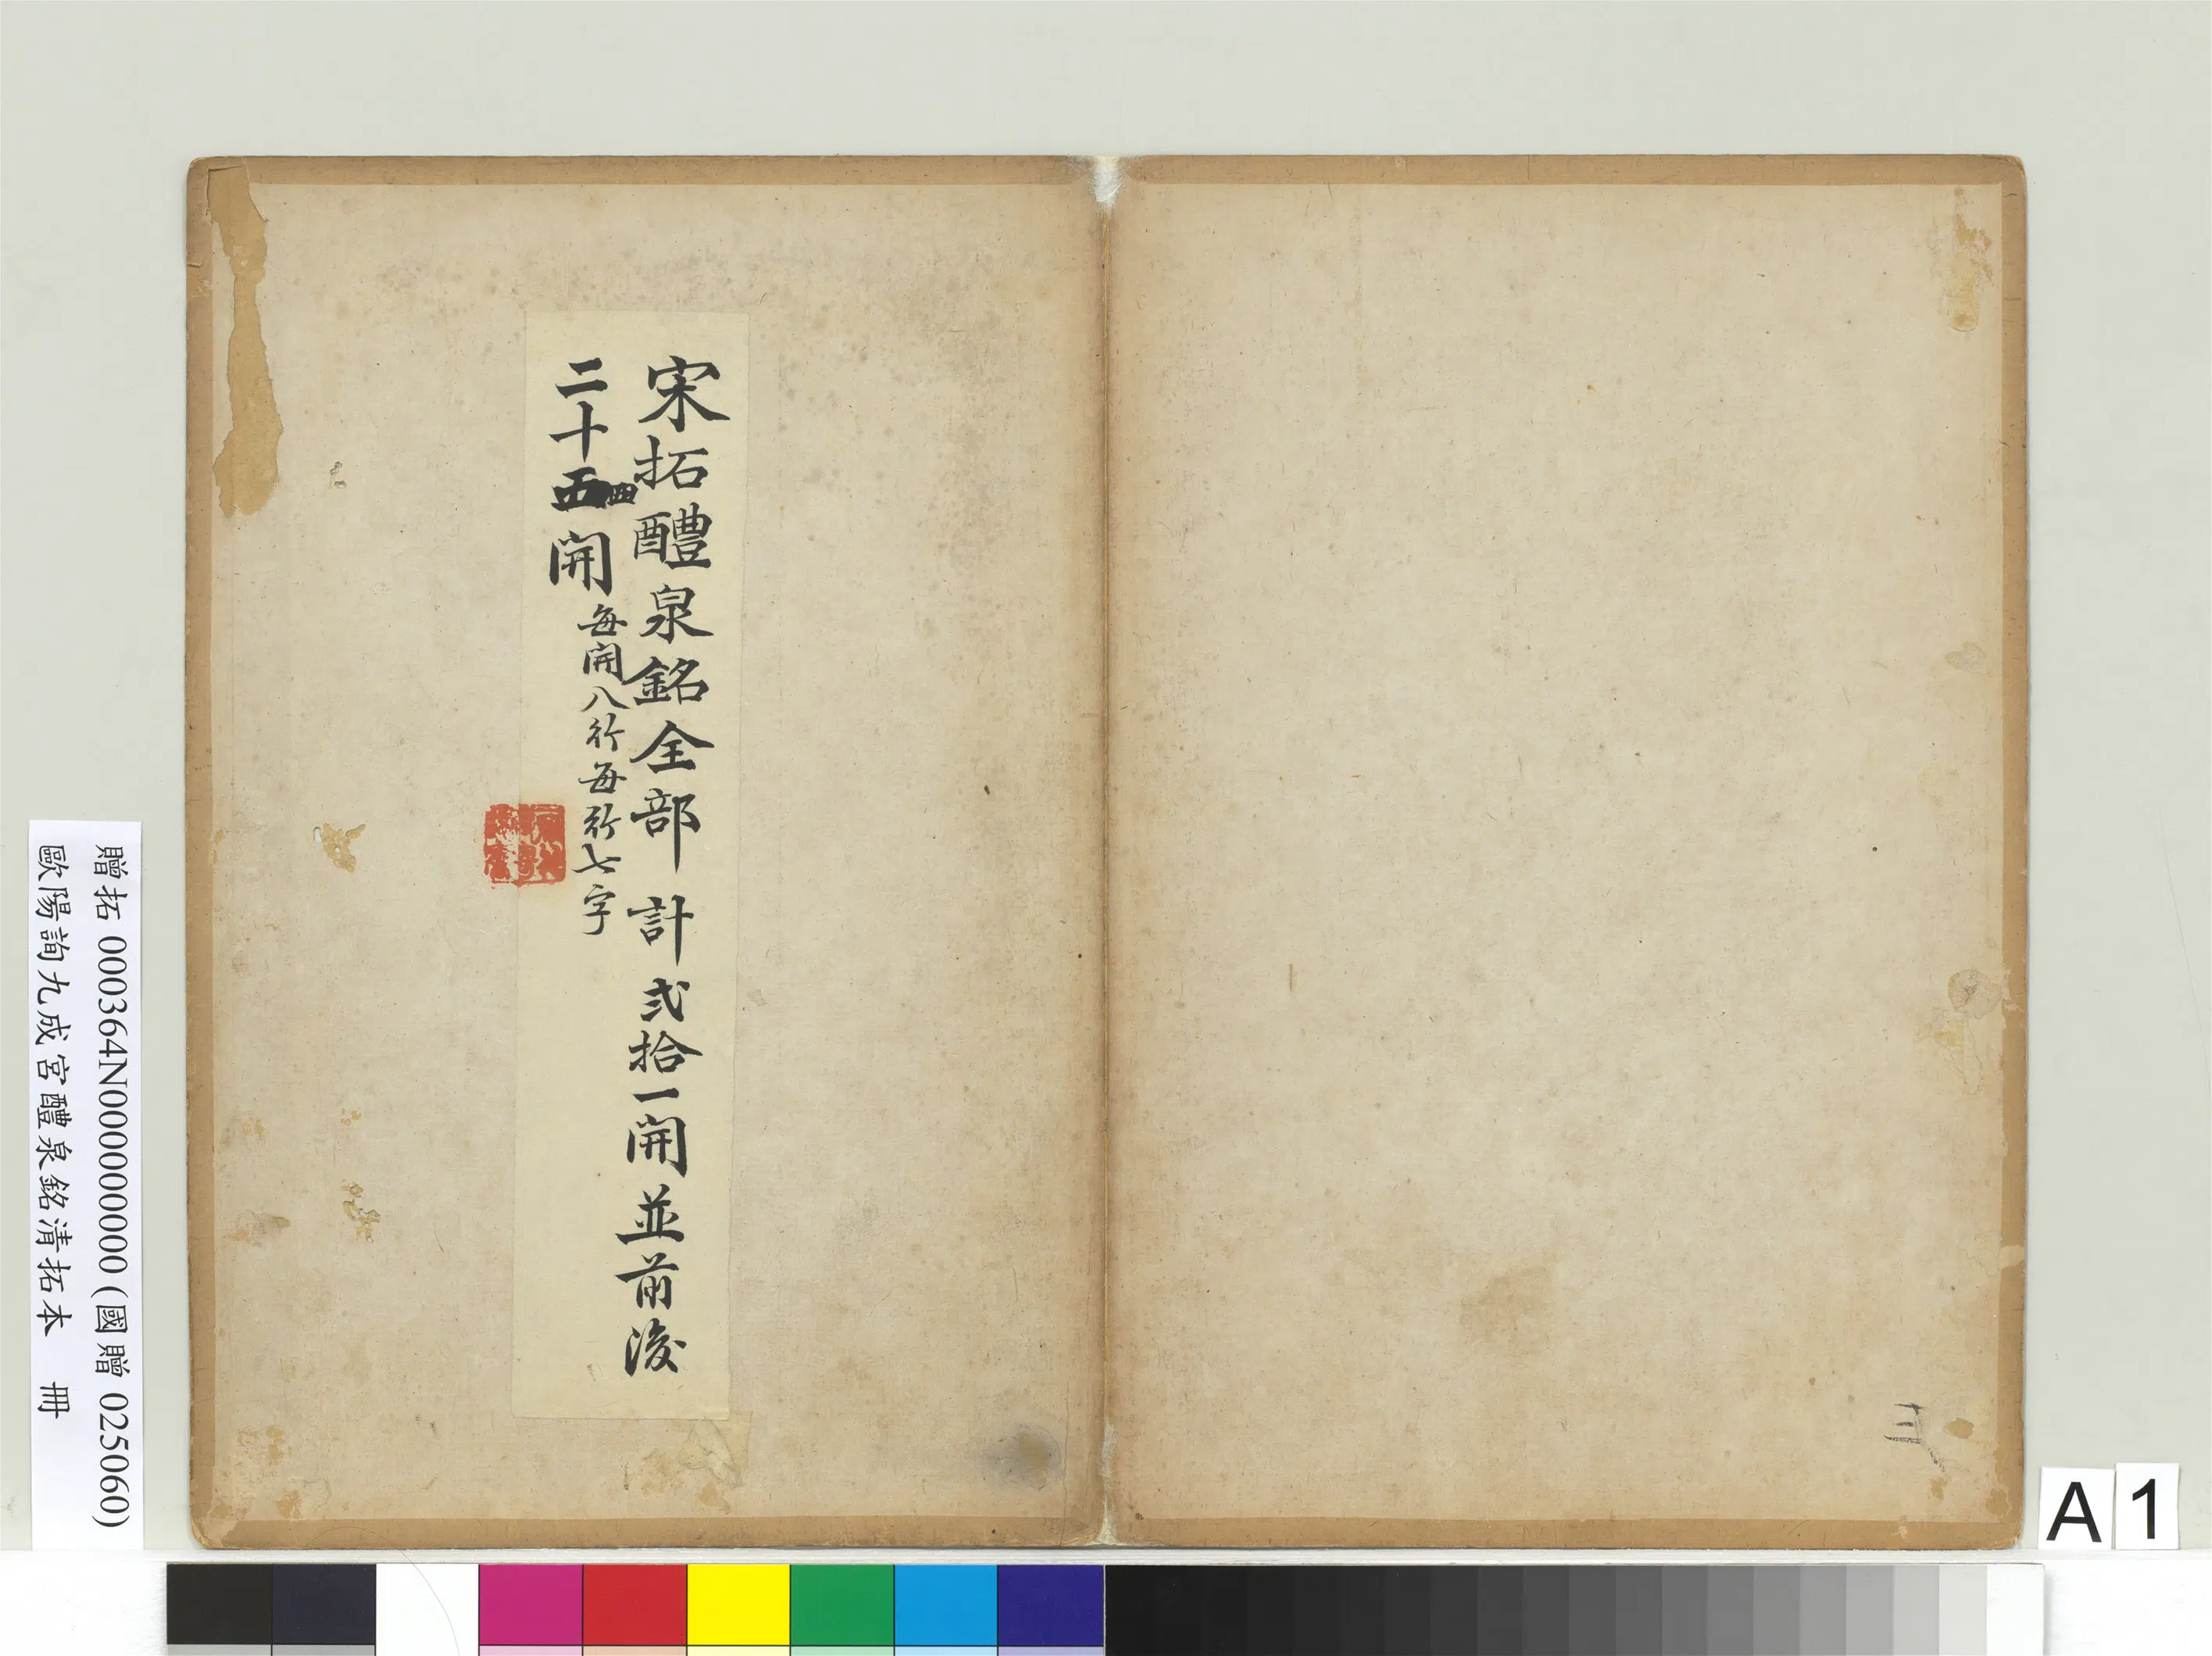 宋拓醴泉銘全部 計弍拾一開並前後
二十四開 每開八行每行七字
贈拓 000364N000000000 (國贈 025060)
歐陽詢九成宮醴泉銘清拓本 冊
A 1